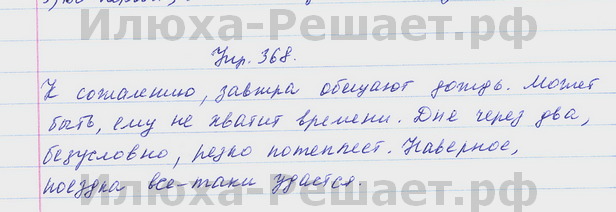 Илюха-Решает.рф
Упр. 368.
К сожалению, завтра обещают дождь. Может
быть, ему не хватит времени. Дня через два,
безусловно, резко потеплеет. Наверное,
поездка все-таки удастся.
Илюха-Решает.рф